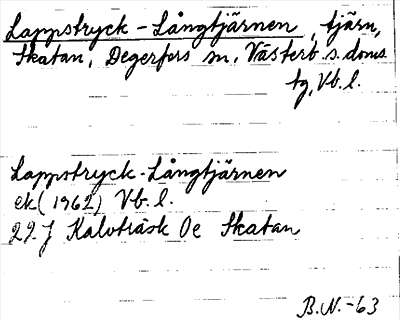 Lappstryck-Långtjärnen, tjärn,
Skatan, Degerfors sn, Västerb.s.doms
tg, Vb.l.
Lappstryck-Långtjärnen
ek (1962) Vb.l.
22J Kalvträsk Oe Skatan
B.N.-63